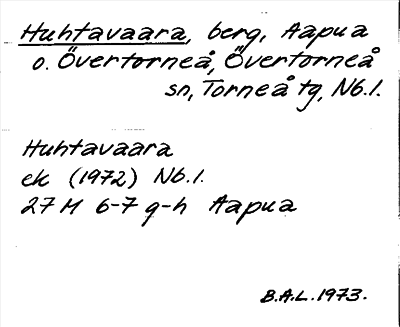 Huhtavaara, berg, Aapua
o. Övertorneå, Övertorneå
sn, Torneå tg, Nb.l.
Huhtavaara
ek (1972) Nb.l.
27 M 6-7 g-h Aapua
B.A.L. 1973.